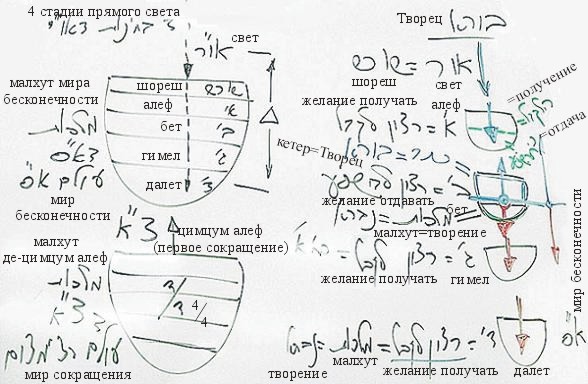 4 стадии прямого света
свет
אור
малхут мира
бесконечности
מלכות
דא"ס
עולם א"ס
мир
бесконечности
шореш
שורש
алеф
א'
бет
ב'
гимел
ג'
далет
ד'
צ"א
цимцум алеф
(первое сокращение)
малхут
де-цимцум алеф
מלכות
דצ"א
мир сокращения
4/4
Творец
בורא
אור = שורש
шореш
свет
желание получать
алеф
=получение
א' = רצון לקבל
=отдача
кетер=Творец
כתר = בורא
ב' = רצון להשפיע
желание отдавать
бет
מלכות = נברא
малхут=творение
ג' = רצון לקבל
желание получать
гимел
мир бесконечности
א"ס
ד' = רצון לקבל = מלכות = נברא
творение
малхут
желание получать
далет